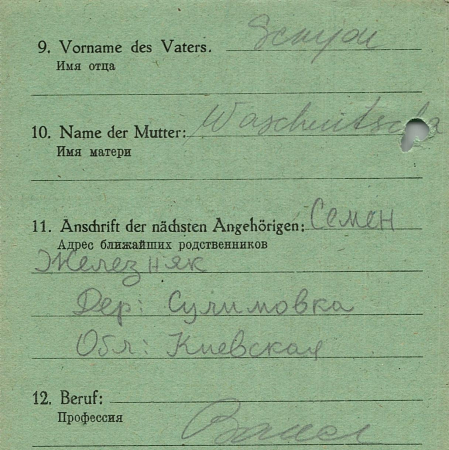 9. Vorname des Vaters.
Имя отца
10. Name der Mutter:
Имя матери
11. Anschrift der nächsten Angehörigen: Семен
Адрес ближайших родственников
Железняк
Дер: Сулимовка
Обл: Киевская
12. Beruf:
Профессия